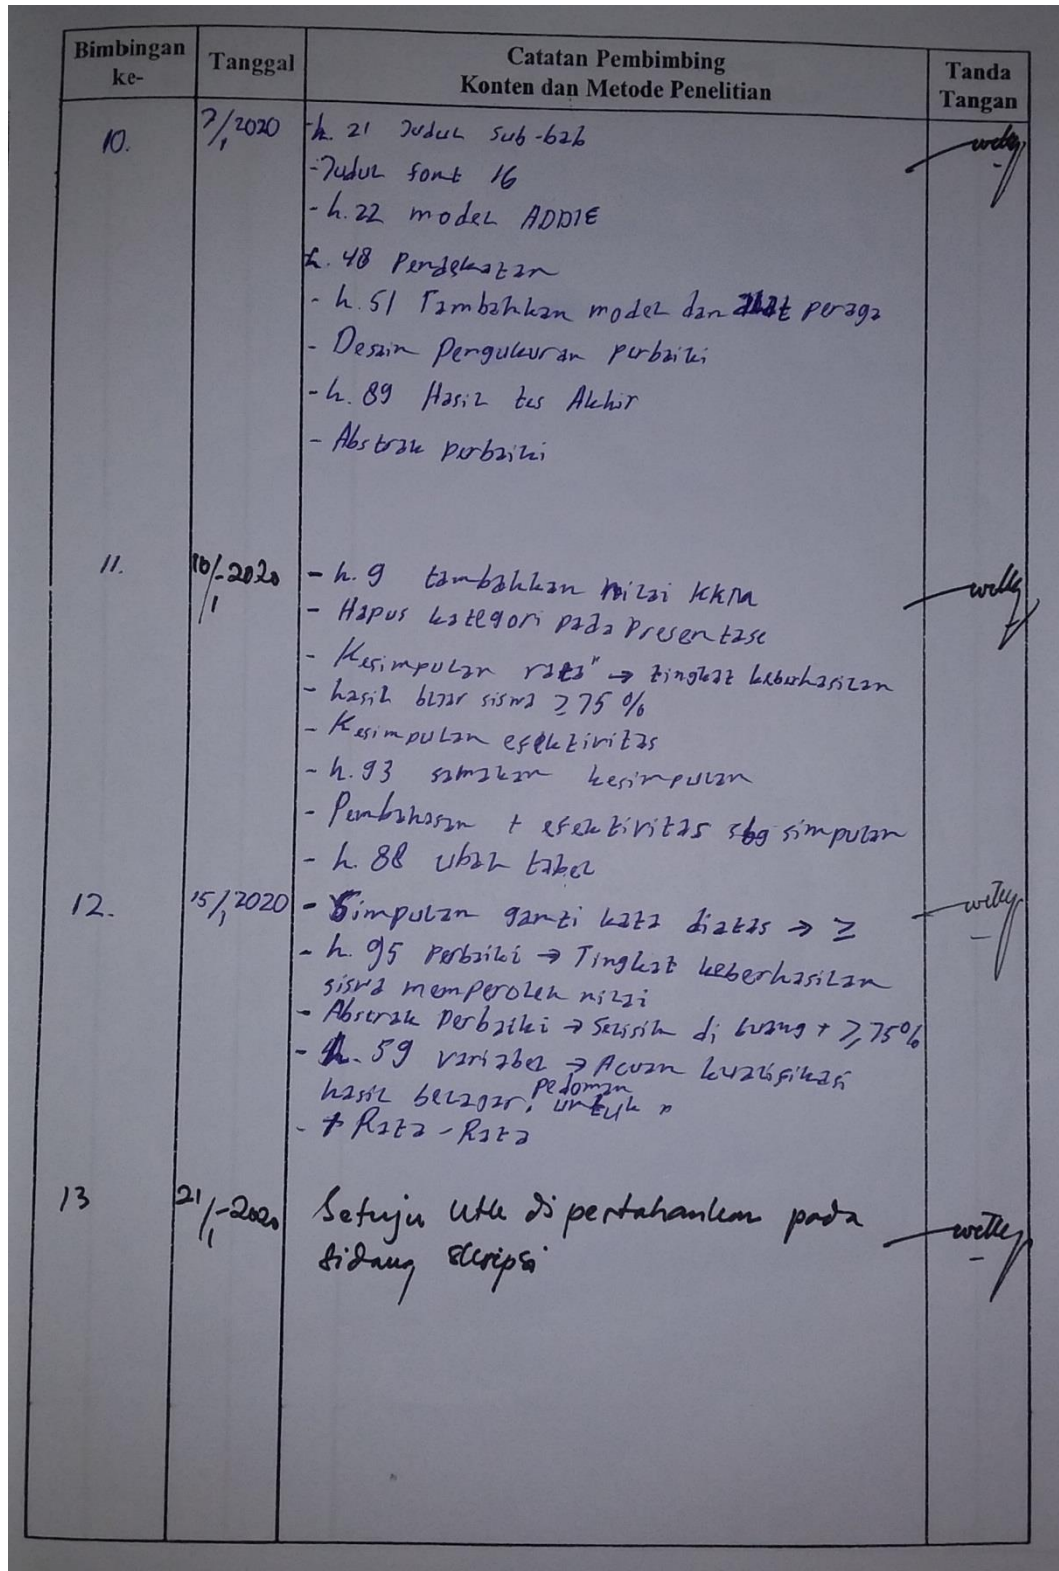 Bimbingan ke-
Tanggal
Catatan Pembimbing
Konten dan Metode Penelitian
Tanda Tangan
10.
7/1 2020
- h. 21 Judul sub-bab
- Judul font 16
- h. 22 model ADDIE
h. 48 Pendekatan
- h. 51 Tambahkan model dan alat peraga
- Desain Pengukuran perbaiki
- h. 89 Hasil tes Akhir
- Abstrak perbaiki
11.
10/1-2020
- h. 9 tambahkan nilai KKM
- Hapus kategori pada Presentase
- Kesimpulan rata" → tingkat keberhasilan
- hasil bljar siswa ≥ 75 %
- Kesimpulan efektivitas
- h. 93 samakan kesimpulan
- Pembahasan + efektivitas sbg simpulan
- h. 88 ubah tabel
12.
15/1 2020
- Simpulan ganti kata diatas → ≥
- h. 95 perbaiki → Tingkat keberhasilan
siswa memperoleh nilai
- Abstrak Perbaiki → Selisih di + ≥ 75%
- h. 59 variabel → Acuan kualifikasi
hasil belajar, pedoman untuk "
- + Rata - Rata
13
21/1-2020
Setuju utk dipertahankan pada
sidang skripsi